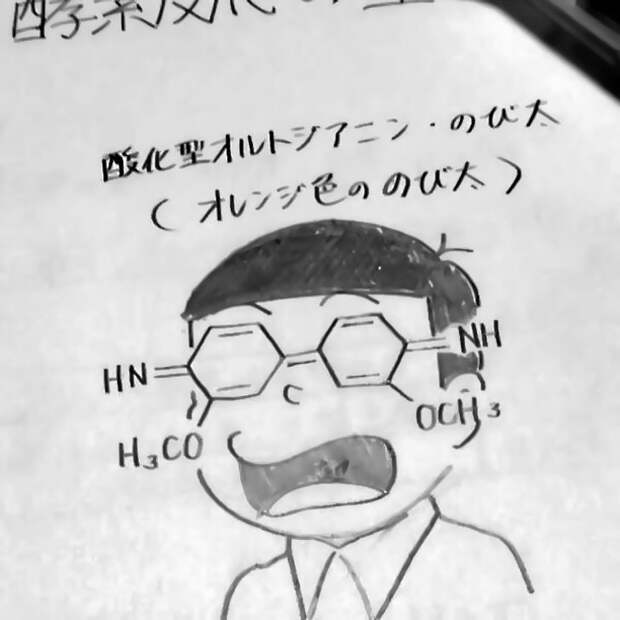 酵素反応の
酸化型オルトジアニシン・のび太
(オレンジ色ののび太)
HN
NH
H₃CO
OCH₃